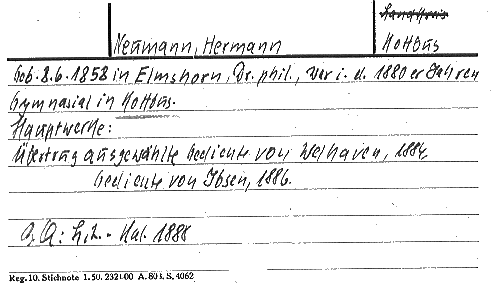 Landkreis
Neumann, Hermann Kottbus
Geb. 8.6.1858 in Elmshorn, Dr. phil., war i. d. 1880er Jahren
Gymnasial in Kottbus.
Hauptwerke:
Übertrag ausgewählte Gedichte von Welhaven, 1884,
Gedichte von Ibsen, 1886.
Lit. - Kal. 1888
Reg. 10. Stichnote 1. 50. 232100 A. 803. S. 4062